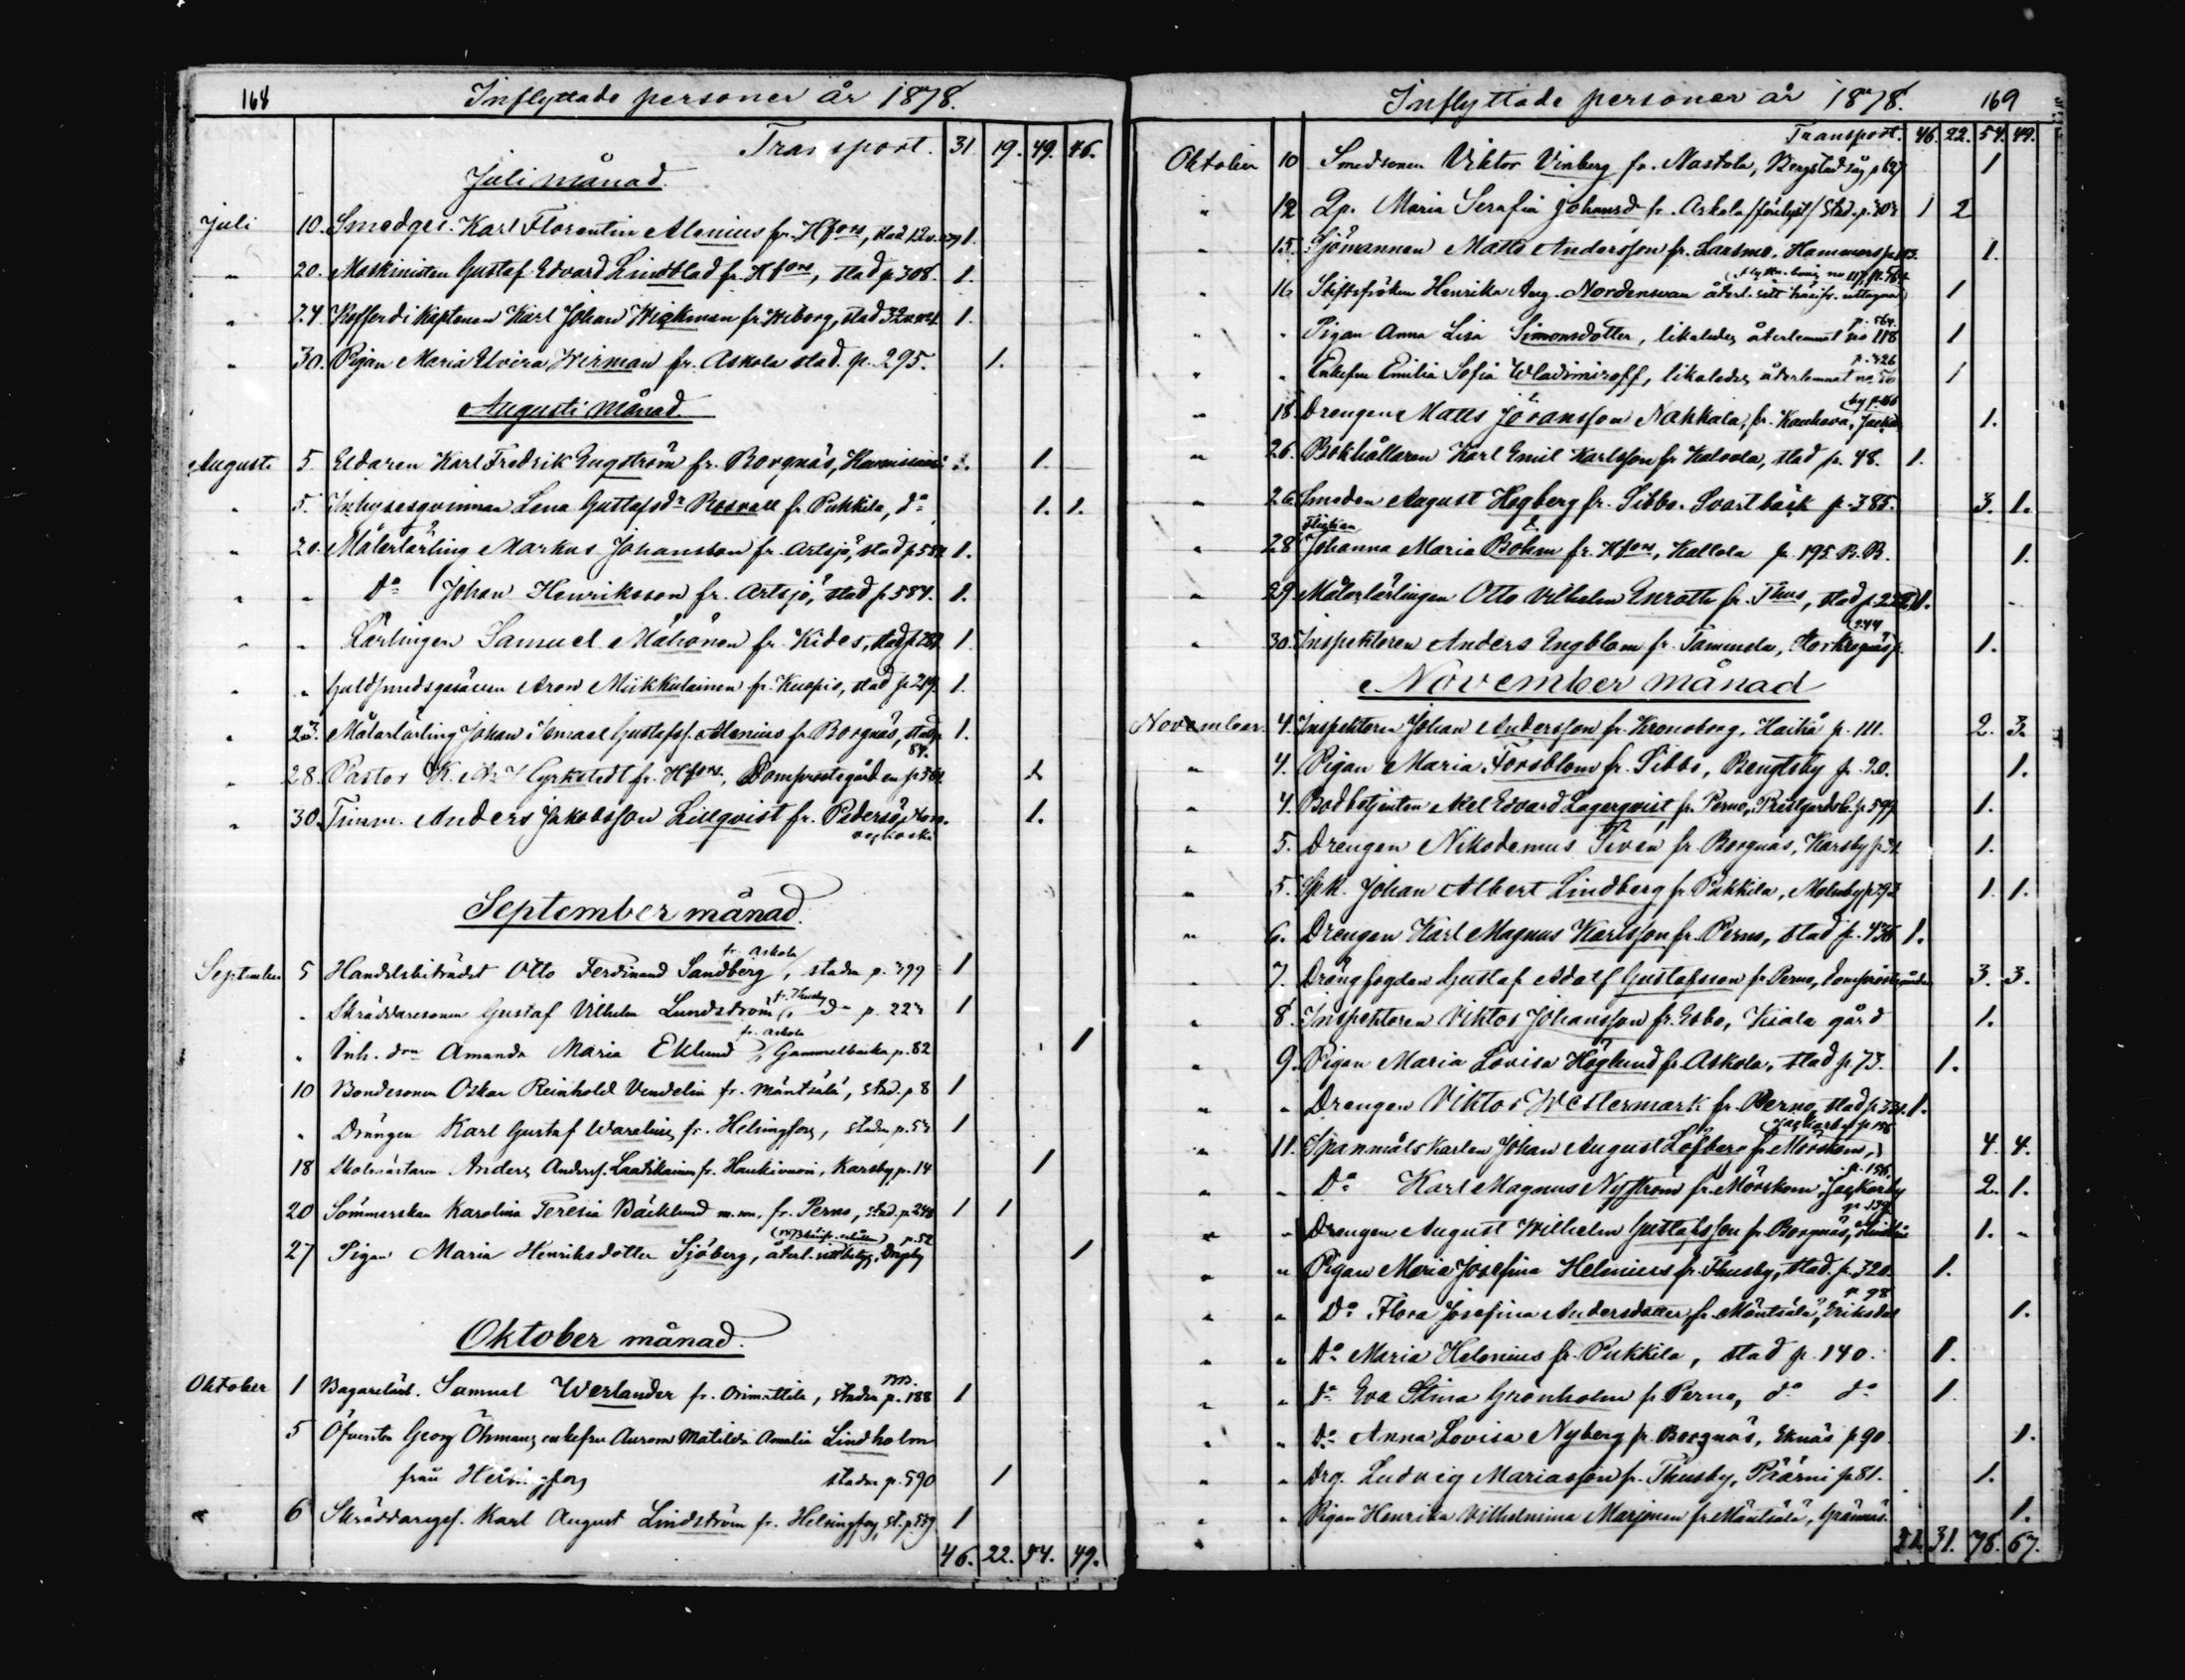 168 Inflyttade personer år 1878.
Transport. 31 19. 49. 46.
Juli månad.
Juli 10. Smedges. Karl Florentin Alenius fr. Hfors, stad 1.
" 20. Maskinisten Gustaf Edvard Lindblad fr. Hfors, stad p 308. 1.
" 24 Kofferdi Kaptenen Karl Johan Wickman fr. Wiborg, stad 1.
" 30. Pigan Maria Elvira Wirman fr. Askola stad. p. 295. 1.
Augusti månad.
Augusti 5. Eldaren Karl Fredrik Engström fr. Borgnäs, 1.
" 5. Inhysesqvinnan Lena Gustafsdr Rosvall fr. Pukkila, do 1. 1.
" 20. Målerlärling Markus Johansson fr. Artsjö, stad p 584 1.
" " do Johan Henriksson fr. Artsjö, stad p. 584. 1.
" " Lärlingen Samuel Mähönen fr. Kides, stad 1
" " Guldsmedsgesällen Aron Miikkulainen fr. Kuopio, stad p 219. 1.
" 23. Målarlärling Johan Ismael Gustafss. Alenius fr. Borgnäs, stad p 1.
84.
" 28. Pastor K. Cyrkstedt fr. Hfors, Domprostegården
" 30. Anders Jakobsson Lillqvist fr. Pedersö, 1.
September månad.
fr. Askola
September 5 Handelsbiträdet Otto Ferdinand Sandberg, staden p. 399 1
" Skräddaresonen Gustaf Vilhelm Lundström, fr. Thusby do p. 223 1
fr. Askola
" Inh. dr Amanda Maria Eklund, Gammelbacka p. 82 1
10 Bondesonen Oskar Reinhold Vendelin fr. Mäntsälä, stad. p 8 1
" Drängen Karl Gustaf Warelius fr. Helsingfors, staden p. 53 1
18 Skolmästaren Anders Anderss. Laatikainen fr. Haukivuori, Karsby p. 14 1
20 Sömmerskan Karolina Teresia Bäcklund m. m. fr. Perno, stad. p. 240 1 1
p. 52
27 Pigan Maria Henriksdotter Sjöberg, återl. sitt betyg, 1
Oktober månad.
Oktober 1 Bagarelärl. Samuel Werlander fr. Orimattila, staden p. 188 1
5 Öfversten Georg Öhmans enkefru Aurora Matilda Amalia Lindholm
från Helsingfors staden p. 590 1
" 6 Skräddaregs. Karl August Lindström fr. Helsingfors, st. p 539 1
46. 22. 54. 49.
Inflyttade personer år 1878. 169
Transport. 46. 22. 54. 49.
Oktober 10 Smedsonen Viktor Vinberg fr. Nastola, p 627 1
" 12 Qp. Maria Serafia Johansd fr. Askola /förlyst/ Stad. p. 303 1 2
" 15. Sjömannen Matts Andersson fr. Larsmo, Hammars 1.
" 16 Stiftsfröken Henrika Aug. Nordensvan återl. sitt härifr. uttagna 1
p. 564.
" " Pigan Anna Lisa Simonsdotter, likaledes återlemnat no 118 1
p. 326
" " Enkefru Emilia Sofia Wladimiroff, likaledes återlemnat no 50 1
" 18. Drengen Matts Jöransson Nahkala, fr. Kauhava, 1.
" 26. Bokhållaren Karl Emil Karlsson fr Kalvola, stad p. 48. 1.
" 26. Smeden August Hogberg fr. Sibbo. Svartbäck p. 385. 3. 1.
Flickan
" 28 Johanna Maria Bohm fr. Hfors, Kallola p. 195 B.B. 1.
" 29. Målarlärlingen Otto Vilhelm Enroth fr. Thus, stad 1.
" 30. Inspektoren Anders Engblom fr. Tammela, 1.
November månad
November. 4. Inspektoren Johan Andersson fr. Kronoborg, Haikå p. 111. 2. 3.
" 4. Pigan Maria Forsblom fr. Sibbo, Bengtsby p. 20. 1.
" 4. Bodbetjenten Axel Edvard Lagerqvist fr. Perno, p. 597 1.
" 5. Drengen Nikodemus Tivén fr. Borgnäs, Karsby p 31. 1.
" 5. Spk. Johan Albert Lindberg fr. Pukkila, 1. 1.
" 6. Drengen Karl Magnus Karlsson fr. Perno, stad p. 436 1.
" 7. Drängfogden Gustaf Adolf Gustafsson fr. Perno, Domprostgården 3. 3.
" 8. Inspektoren Viktor Johansson fr. Esbo, Kiala gård 1.
" 9. Pigan Maria Lovisa Höglund fr. Askola, stad p. 73. 1.
" " Drengen Viktor Westermark fr. Perno, stad 1.
" 11. Spannmåls karlen Johan August Löfberg fr. Mörskom, 4. 4.
p. 156.
" " Do Karl Magnus Nyström fr. Mörskom, Jackarby 2. 1.
" " Drengen August Wilhelm Gustafsson fr. Borgnäs, 1. "
" " Pigan Maria Josefina Helenius fr. Thusby, stad. p. 320. 1.
p 98
" " Do Flora Josefina Andersdotter fr. Mäntsälä, Eriksdal 1.
" " Do Maria Helenius fr. Pukkila, stad p. 140. 1.
" " Do Eva Stina Grönholm fr. Perno, do do 1.
" " Do Anna Lovisa Nyberg fr. Borgnäs, Eknäs p 90 1.
" " Drg. Ludvig Mariasson fr. Thusby, Päärni p 81. 1.
" " Pigan Henrika Vilhelmina Marjonen fr. Mäntsälä, Grännäs. 1.
31. 78. 67.